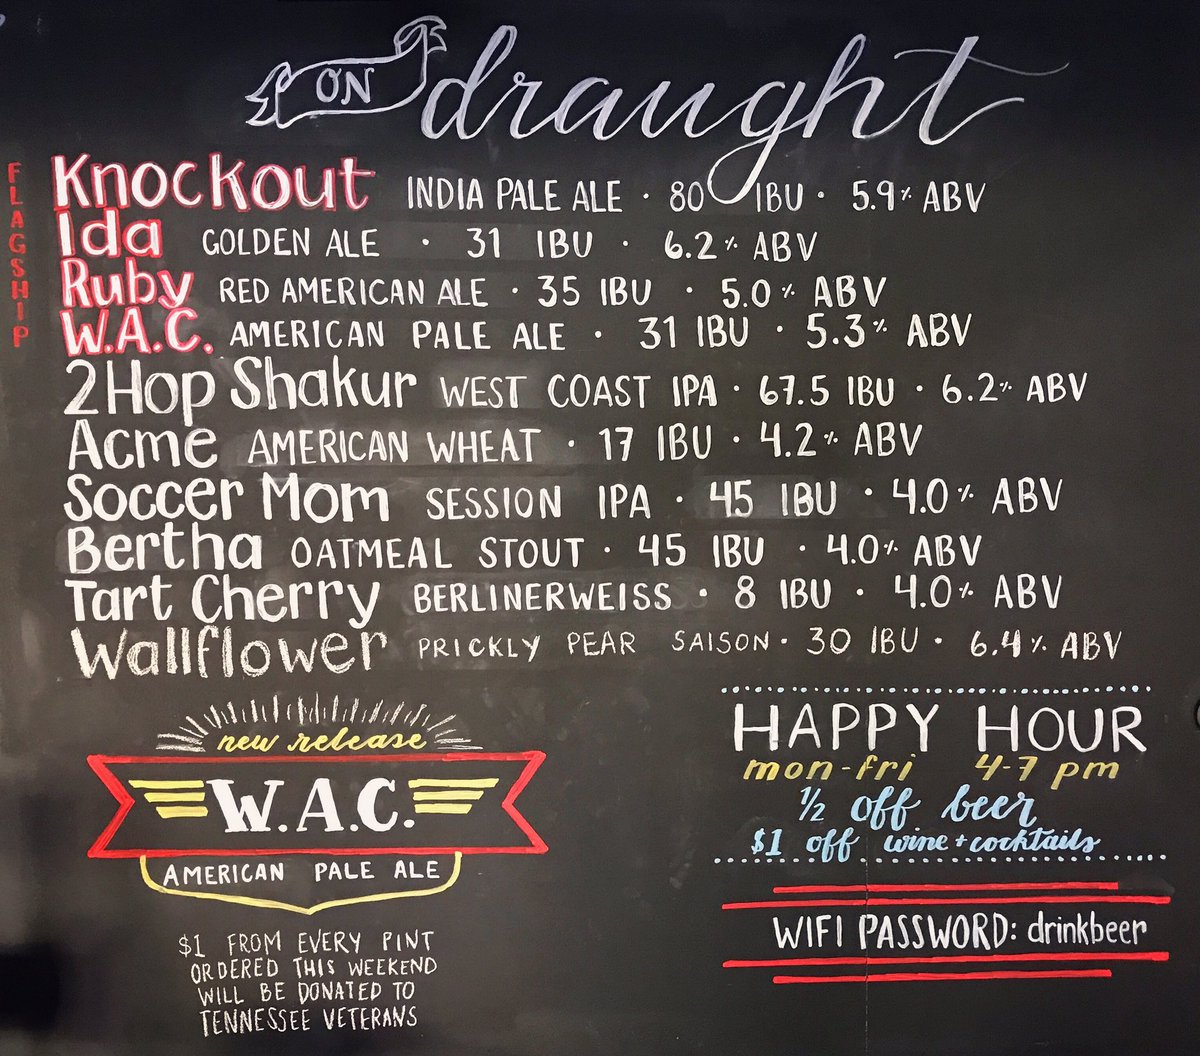 ON draught
FLAGSHIP
Knockout INDIA PALE ALE · 80 IBU · 5.9% ABV
Ida GOLDEN ALE · 31 IBU · 6.2% ABV
Ruby RED AMERICAN ALE · 35 IBU · 5.0% ABV
W.A.C. AMERICAN PALE ALE · 31 IBU · 5.3% ABV
2Hop Shakur WEST COAST IPA · 67.5 IBU · 6.2% ABV
Acme AMERICAN WHEAT · 17 IBU · 4.2% ABV
Soccer Mom SESSION IPA · 45 IBU · 4.0% ABV
Bertha OATMEAL STOUT · 45 IBU · 4.0% ABV
Tart Cherry BERLINERWEISS · 8 IBU · 4.0% ABV
Wallflower PRICKLY PEAR SAISON · 30 IBU · 6.4% ABV
new release
W.A.C.
AMERICAN PALE ALE
$1 FROM EVERY PINT
ORDERED THIS WEEKEND
WILL BE DONATED TO
TENNESSEE VETERANS
HAPPY HOUR
mon-fri 4-7 pm
1/2 off beer
$1 off wine + cocktails
WIFI PASSWORD: drinkbeer